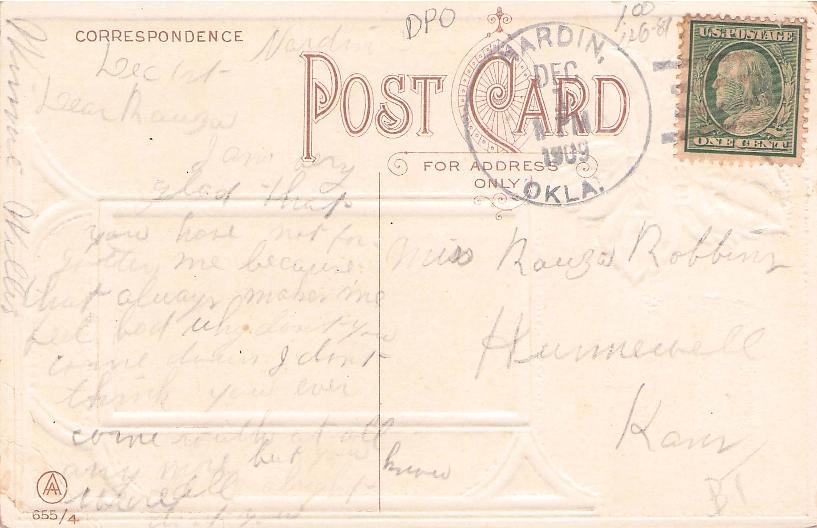 DPO
1.00
CORRESPONDENCE
POST CARD
FOR ADDRESS
ONLY
NARDIN,
DEC
1
1909
OKLA.
U.S. POSTAGE
ONE CENT
Nardin
Dec 1st
Dear Rauza
I am very
glad that
you have not for-
gotten me because
that always makes me
feel bad why don't you
come down I don't
think you ever
come south at all
any more but you
know
Minnie Willis
Miss Rauza Robbins
Hunnewell
Kans
655/4